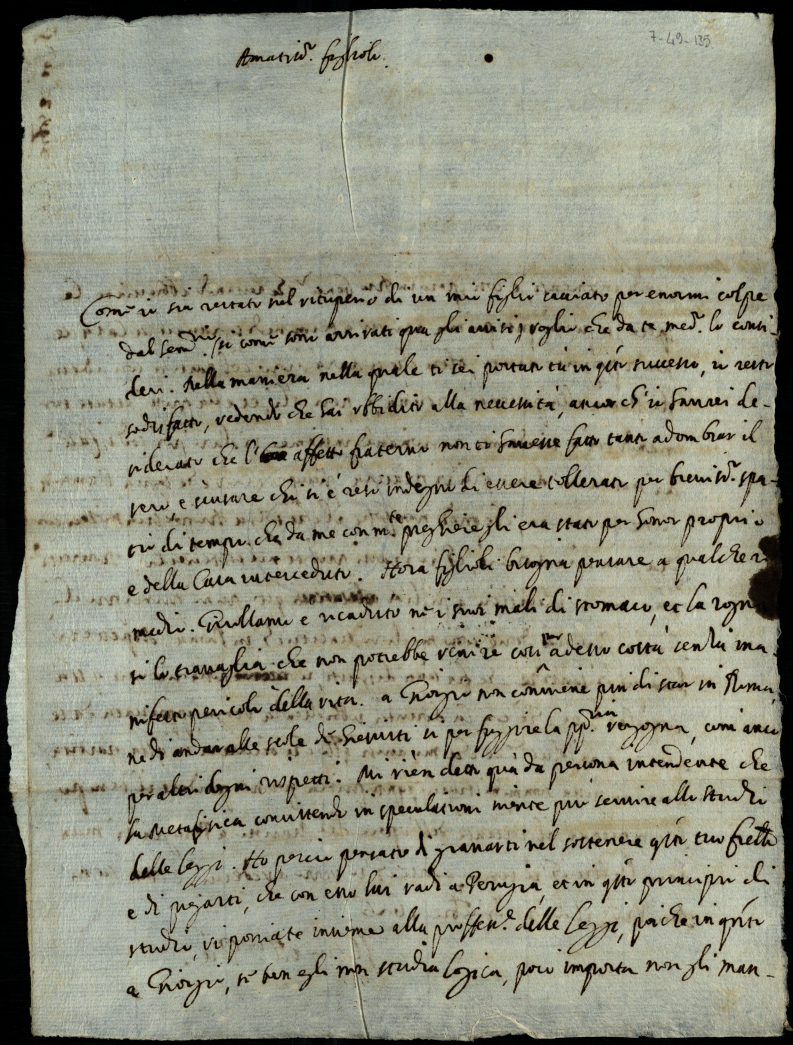 7-49-139
Amatiss.i figlioli.
Come io sia restato nel vituperio di un mio figlio cacciato per enormi colpe
dal Sem.rio, si come sono arrivati qua gli avvisi, voglio che da te med.o lo consi-
deri. Nella maniera nella quale ti sei portato tù in q.to successo, io resto
sodisfatto, vedendo che hai ubbidito alla necessità, ancorch'io haurei de-
siderato che l' affetto fraterno non ti havesse fatto tanto adombrar il
vero, e scusare chi si è reso indegno di essere tollerato per brevis.o spa-
tio di tempo che da me con m.te preghiere gli era stato per honor proprio
e della Casa interceduto. Hora figlioli bisogna pensare a qualche ri
medio. Girollamo è ricaduto ne i suoi mali di stomaco, et la rogna
si lo travaglia che non potrebbe venire adesso costà senza ma-
nifesto pericolo della vita. a Giorgio non conviene più di star in Roma,
ne di andar alle scole de Giesuiti si per fuggire la vergogna, com'anco
per altri degni rispetti. Mi vien detto quà da persona intendente che
la Metafisica consistendo in speculationi niente può servire allo studio
delle leggi. Ho perciò pensato di gravarti nel sostenere q.to tuo fr̃ello
e di pregarti, che con esso lui vadi a Perugia, et in q.to principio di
studio, vi poniate insieme alla proffess.e delle Leggi, poiche in q.to
a Giorgio, se ben egli non studia logica, poco importa non gli man-